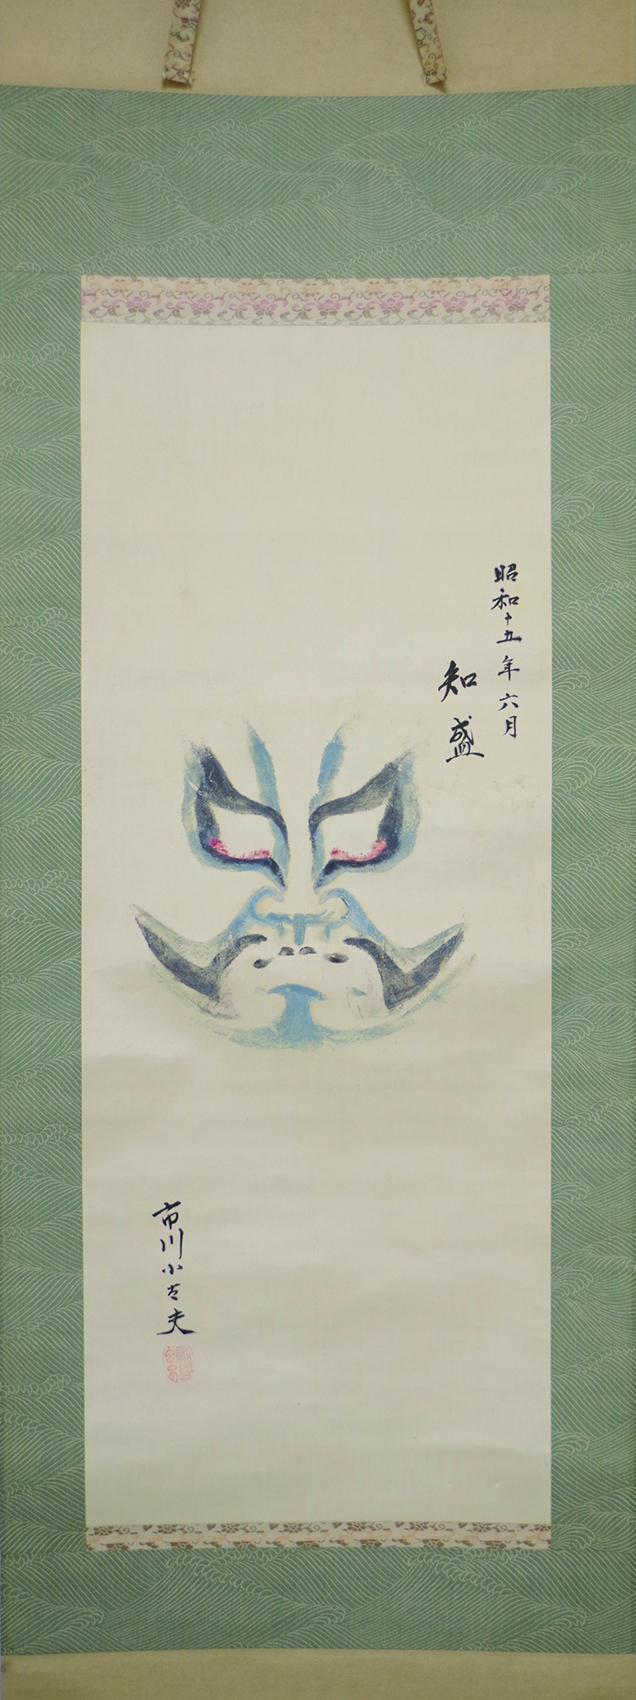 昭和十五年六月
知盛
市川小太夫